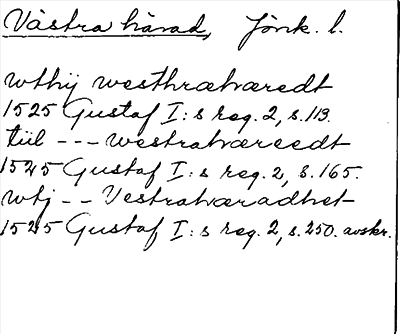 Västra härad, Jönk. l.
wthij westhrahæredt
1525 Gustaf I:s reg. 2, s. 113.
tiil --- westrahæreedt
1525 Gustaf I:s reg. 2, s. 165.
wtj -- Vestrahæradhet
1525 Gustaf I:s reg. 2, s. 250. avskr.